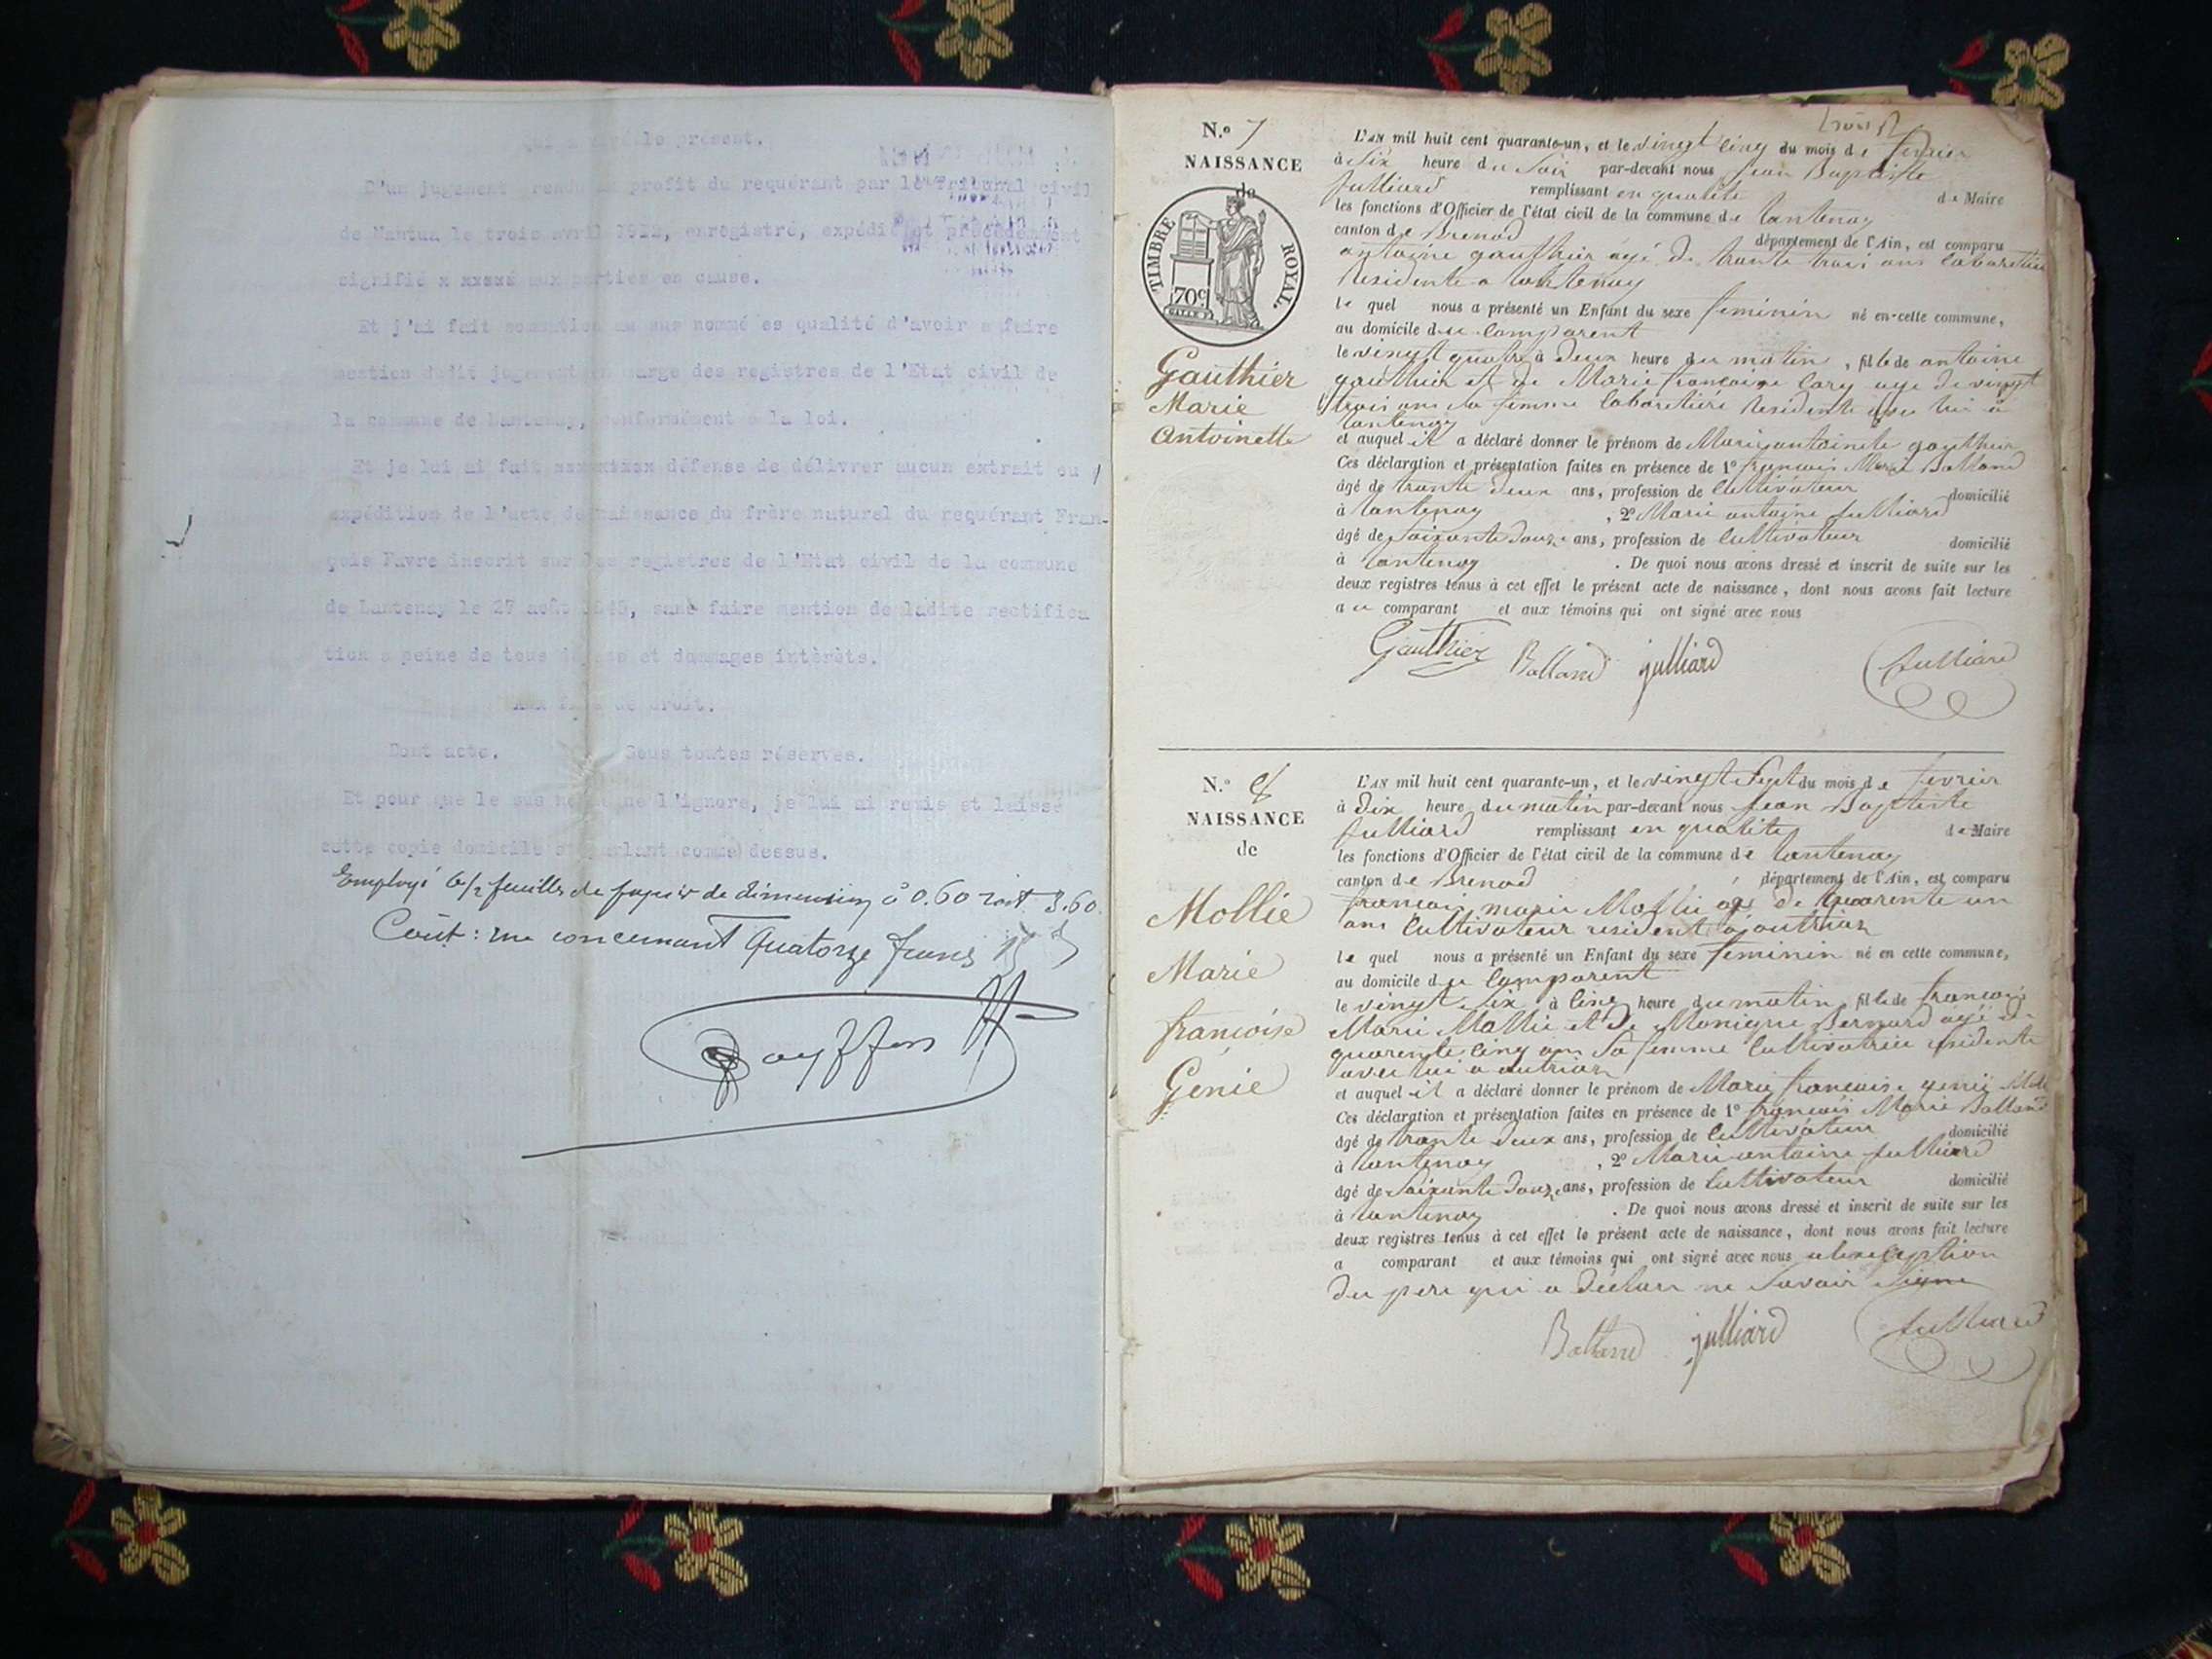 qui a parlé le présent.
D'un jugement rendu au profit du requérant par le Tribunal civil
de Nantua le trois avril enregistré, expédié et précédemment
signifié x xxxxx aux parties en cause.
Et j'ai fait sommation au sus nommé es qualité d'avoir a faire
mention dudit jugement en marge des registres de l'Etat civil de
la commune de Lantenay, conformément a la loi.
Et je lui ai fait xxxxxxxxx défense de délivrer aucun extrait ou
expédition de l'acte de naissance du frère naturel du requérant Fran-
çois Favre inscrit sur les registres de l'Etat civil de la commune
de Lantenay le 27 août sans faire mention de ladite rectifica
tion a peine de tous dépens et dommages intèrèts.
Aux fins de droit.
Dont acte. Sous toutes réserves.
Et pour que le sus nommé ne l'ignore, je lui ai remis et laissé
cette copie domicile et parlant comme dessus.
Employé feuilles de papier de dimension à 0.60 soit 3.60
Coût: quatorze francs
N.o 7
NAISSANCE
de
TIMBRE ROYAL.
70c
Gauthier
Marie
antoinette
L'AN mil huit cent quarante-un, et le vingt cinq du mois de fevrier
à Six heure du Soir par-devant nous jean Baptiste
julliard remplissant en qualité de Maire
les fonctions d'Officier de l'état civil de la commune de lantenay
canton de Brenod département de l'Ain, est comparu
antoine gauthier agé de trante trois ans cabaretier
residente a lantenay
le quel nous a présenté un Enfant du sexe feminin né en cette commune,
au domicile du comparent
le vingt quatre à Deux heure du matin, fille de antoine
gauthier et de Marie francoise Cary age de vingt
trois ans sa femme cabaretiére residente avec lui a
lantenay
et auquel il a déclaré donner le prénom de Marie antoinete gauthier
Ces déclaration et présentation faites en présence de 1o francois Marie Balland
âgé de trante deux ans, profession de cultivateur domicilié
à lantenay, 2o Marie antoine julliard
âgé de Soixante Douze ans, profession de cultivateur domicilié
à lantenay. De quoi nous avons dressé et inscrit de suite sur les
deux registres tenus à cet effet le présent acte de naissance, dont nous avons fait lecture
au comparant et aux témoins qui ont signé avec nous
Gauthier Balland julliard julliard
N.o 8
NAISSANCE
de
Mollie
Marie
francoise
Génie
L'AN mil huit cent quarante-un, et le vingt Sept du mois de fevrier
à Dix heure du matin par-devant nous jean Baptiste
julliard remplissant en qualite de Maire
les fonctions d'Officier de l'état civil de la commune de lantenay
canton de Brenod département de l'Ain, est comparu
francois marie Mollie agé de quarente un
ans cultivateur resident a outriaz
le quel nous a présenté un Enfant du sexe feminin né en cette commune,
au domicile du comparent
le vingt six à cinq heure du matin, fille de francois
Marie Mollie et de Monique Bernard agé de
quarente cinq ans Sa femme cultivatrice residente
avec lui a outriaz
et auquel il a déclaré donner le prénom de Marie francoise genie
Ces déclaration et présentation faites en présence de 1o francois Marie Balland
âgé de trante deux ans, profession de cultivateur domicilié
à lantenay, 2o Marie antoine julliard
âgé de Soixante Douze ans, profession de cultivateur domicilié
à lantenay. De quoi nous avons dressé et inscrit de suite sur les
deux registres tenus à cet effet le présent acte de naissance, dont nous avons fait lecture
a comparant et aux témoins qui ont signé avec nous a lexception
du pere qui a Déclare ne Savoir signe
Balland julliard julliard